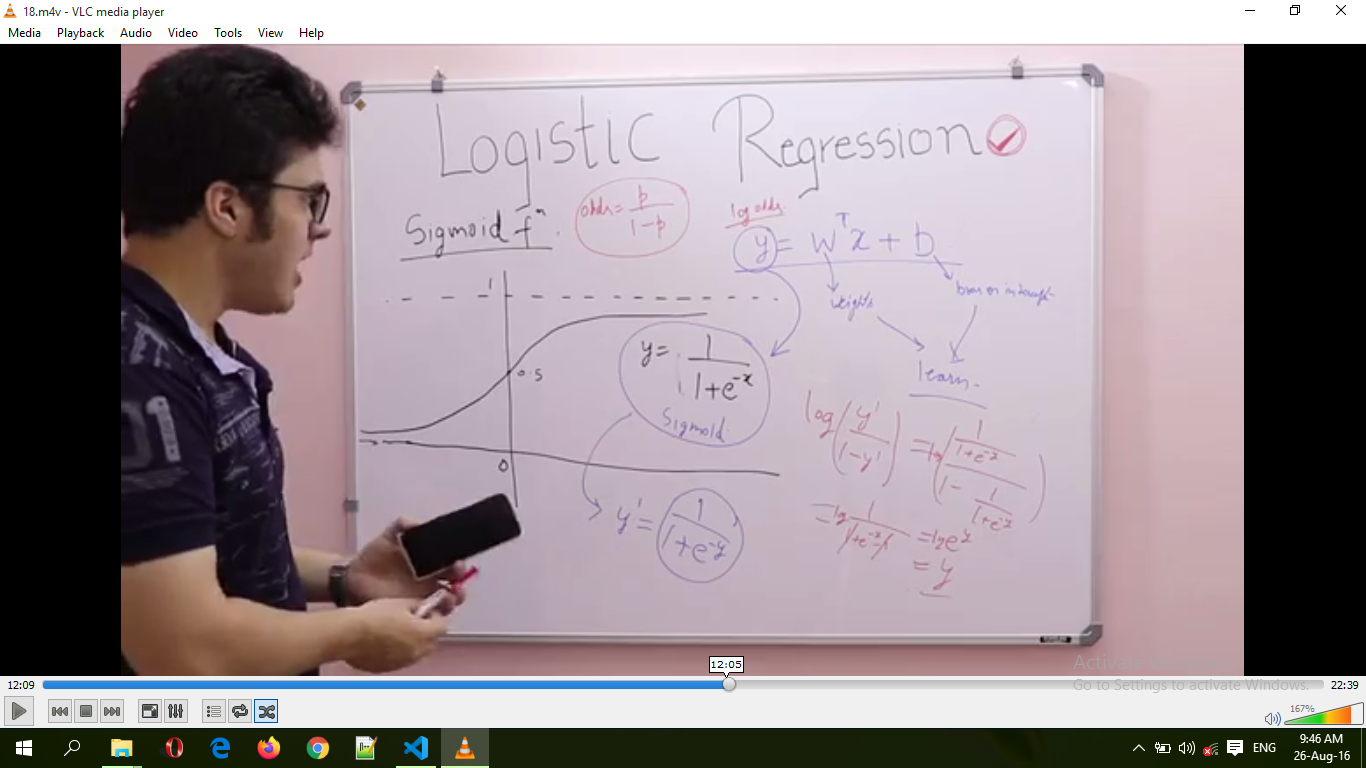 18.m4v - VLC media player
Media Playback Audio Video Tools View Help
Logistic Regression
Sigmoid fⁿ
odds = p/(1-p)
log odds
y = wᵀx + b
weights
bias or intercept
learn
1
0.5
0
y = 1/(1+e⁻ˣ)
Sigmoid
y' = 1/(1+e⁻ʸ)
log(y'/(1-y')) = log((1/(1+e⁻ˣ))/(1 - 1/(1+e⁻ˣ)))
= log eˣ
= y
01
Activate Windows
Go to Settings to activate Windows.
12:05
12:09
22:39
167%
ENG
9:46 AM
26-Aug-16